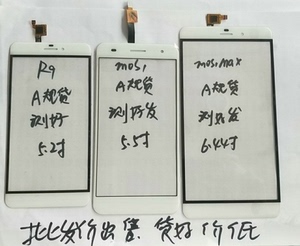 R9
A规货
测好
5.2寸
mos1
A规货
测好发
5.5寸
mos1max
A规货
测好发
6.44寸
批发价出售 货好价低